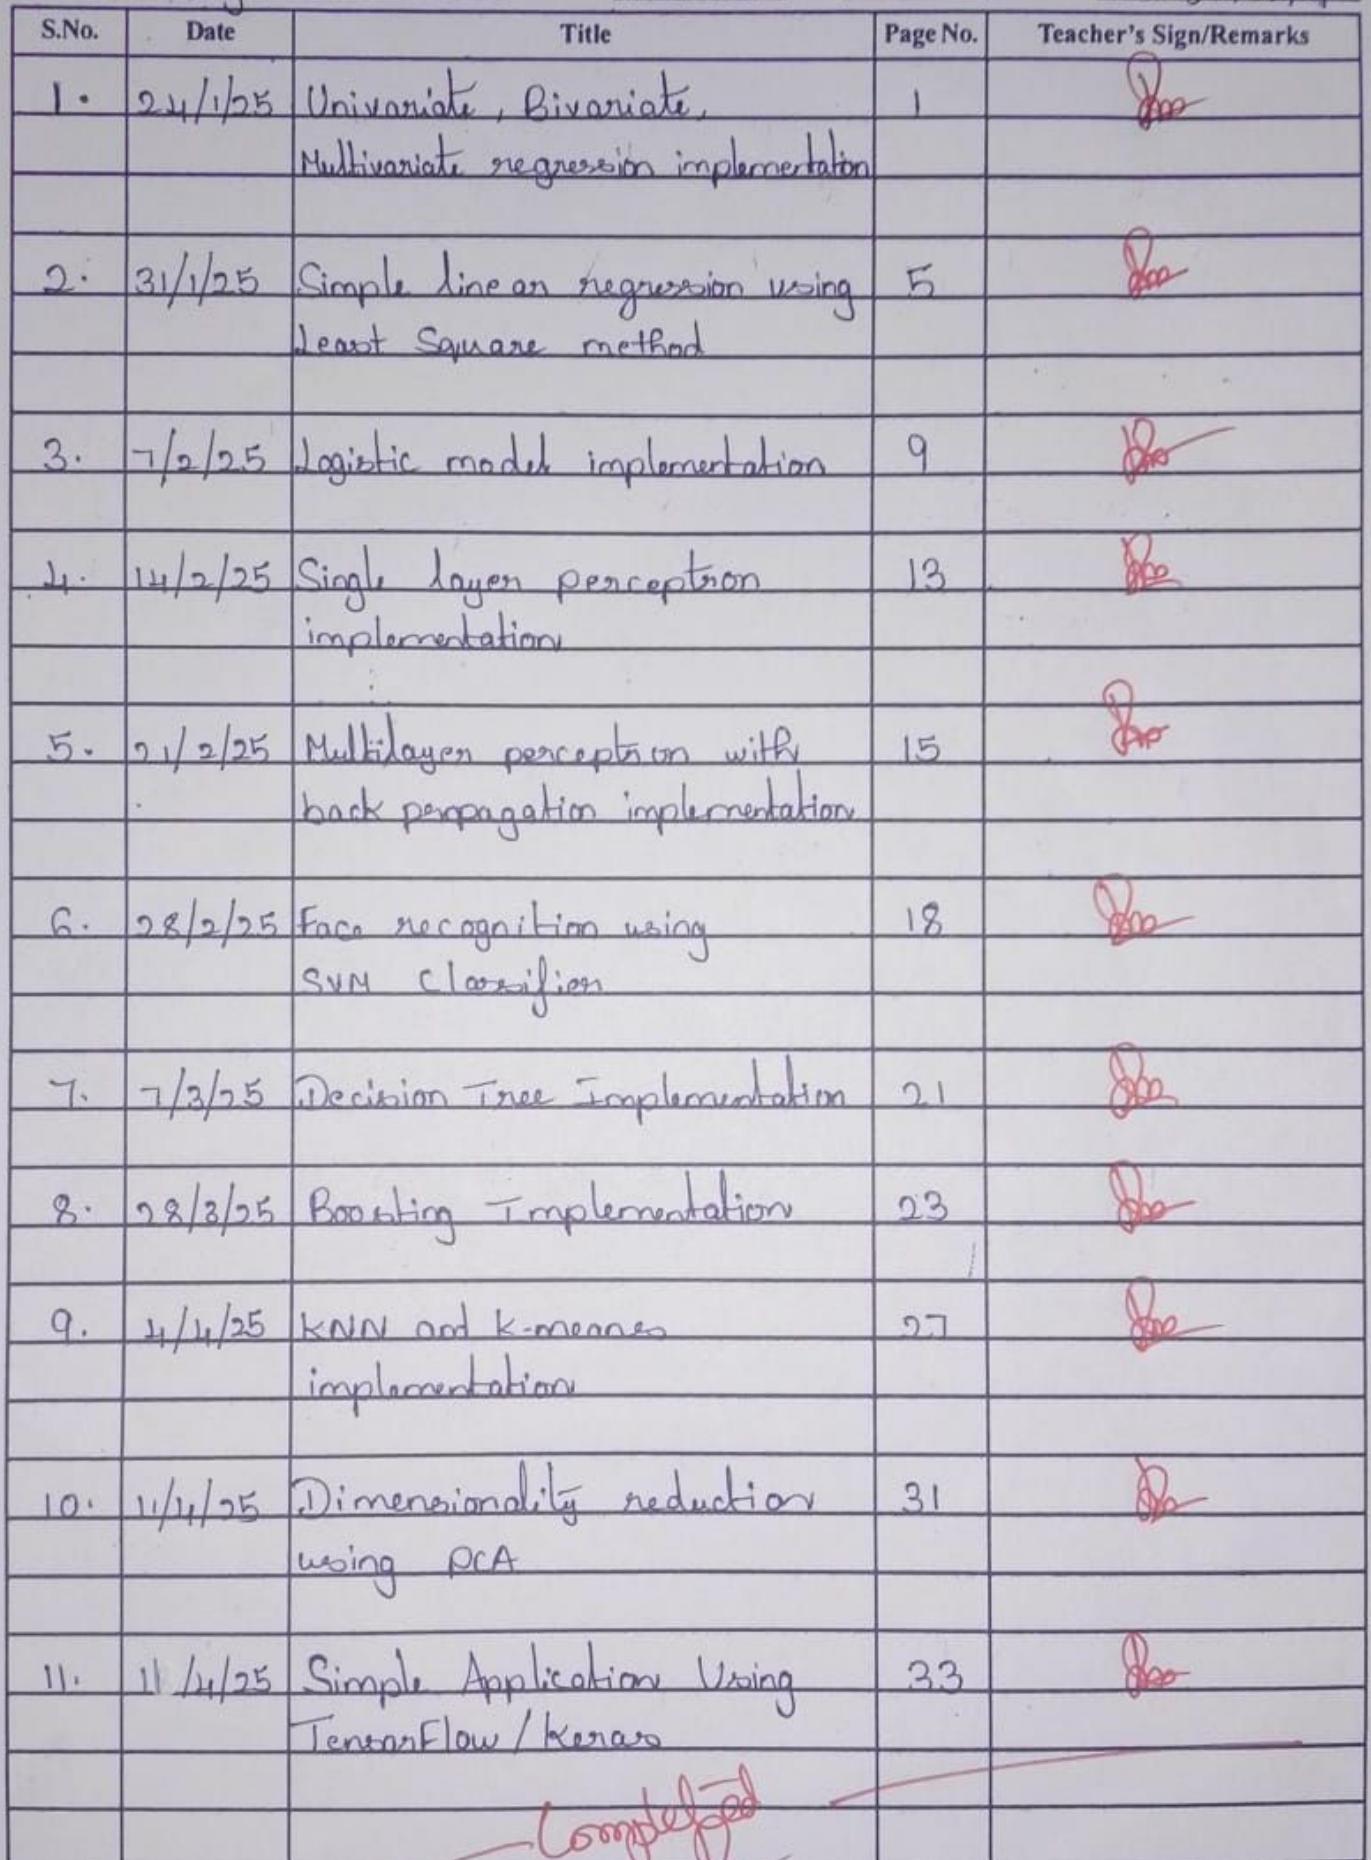 S.No. Date Title Page No. Teacher's Sign/Remarks
1. 24/1/25 Univariate, Bivariate, 1
Multivariate regression implementation
2. 31/1/25 Simple linear regression using 5
Least Square method
3. 7/2/25 Logistic model implementation 9
4. 14/2/25 Single layer perceptron 13
implementation
5. 21/2/25 Multilayer perceptron with 15
back perpagation implementation
6. 28/2/25 Face recognition using 18
SVM Classifier
7. 7/3/25 Decision Tree Implementation 21
8. 28/3/25 Boosting Implementation 23
9. 4/4/25 KNN and K-meanes 27
implementation
10. 11/4/25 Dimensionality reduction 31
using PCA
11. 11/4/25 Simple Application Using 33
TensorFlow/Keras
Completed